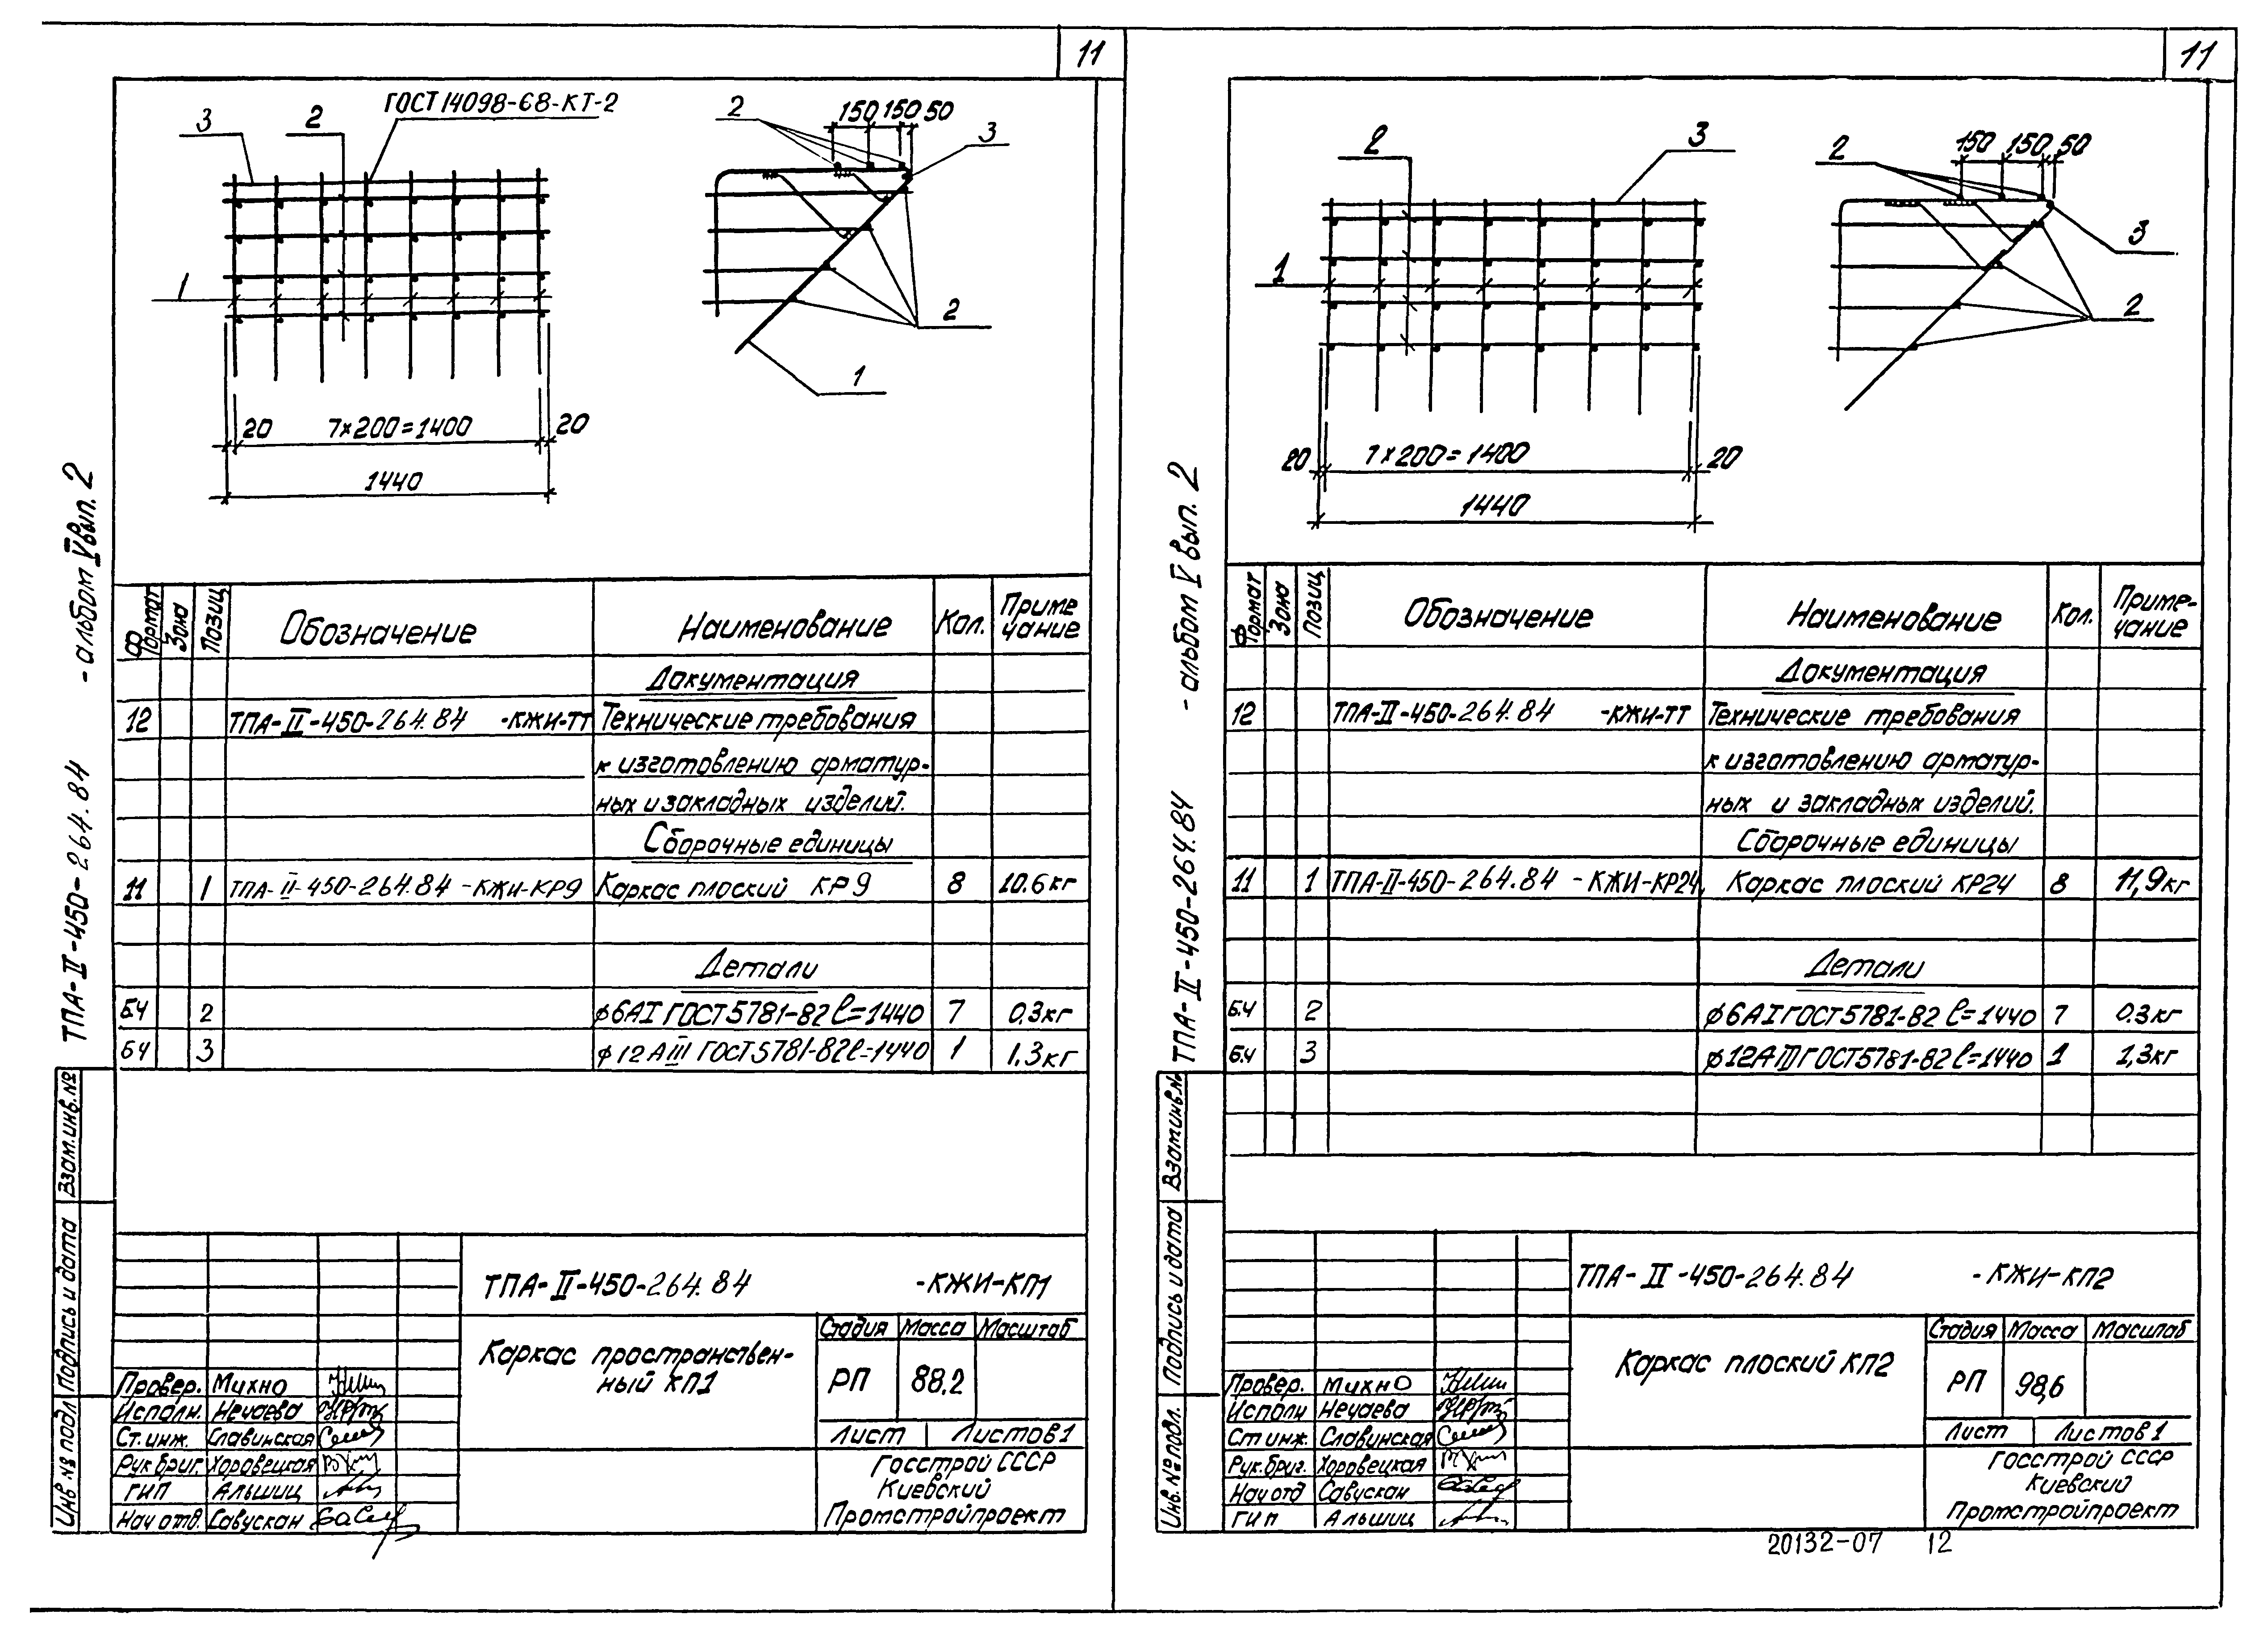 11
ГОСТ 14098-68-КТ-2
3
2
2
150 150 50
3
1
2
1
20
7×200=1400
20
1440
- альбом V вып. 2
ТПА-II-450-264.84
Формат
Зона
Позиц
Обозначение
Наименование
Кол.
Приме
чание
Документация
12 ТПА-II-450-264.84 -КЖИ-ТТ Технические требования
к изготовлению арматур-
ных и закладных изделий.
Сборочные единицы
11 1 ТПА-II-450-264.84-КЖИ-КР9 Каркас плоский КР9 8 10.6кг
Детали
БЧ 2 ϕ6АI ГОСТ5781-82 ℓ=1440 7 0.3кг
БЧ 3 ϕ12АIII ГОСТ5781-82 ℓ=1440 1 1,3кг
Взам.инв.№
Подпись и дата
Инв № подл
ТПА-II-450-264.84 -КЖИ-КП1
Каркас пространствен-
ный КП1
Стадия Масса Масштаб
РП 88,2
Лист Листов 1
Госстрой СССР
Киевский
Промстройпроект
Провер. Михно
Исполн. Нечаева
Ст.инж. Славинская
Рук бриг. Хоровецкая
ГИП Альшиц
Нач отд. Савускан
11
2
3
2
150 150 50
1
3
2
20
7×200=1400
20
1440
- альбом V вып. 2
ТПА-II-450-264.84
Формат
Зона
Позиц
Обозначение
Наименование
Кол.
Приме-
чание
Документация
12 ТПА-II-450-264.84 -КЖИ-ТТ Технические требования
к изготовлению арматур-
ных и закладных изделий.
Сборочные единицы
11 1 ТПА-II-450-264.84 -КЖИ-КР24 Каркас плоский КР24 8 11,9кг
Детали
БЧ 2 ϕ6АI ГОСТ5781-82 ℓ=1440 7 0.3кг
БЧ 3 ϕ12АIII ГОСТ5781-82 ℓ=1440 1 1,3кг
Взам.инв.№
Подпись и дата
Инв. № подл.
ТПА-II-450-264.84 -КЖИ-КП2
Каркас плоский КП2
Стадия Масса Масштаб
РП 98,6
Лист Листов 1
Госстрой СССР
Киевский
Промстройпроект
Провер. Михно
Исполн Нечаева
Ст инж. Славинская
Рук.бриг. Хоровецкая
Нач отд Савускан
ГИП Альшиц
20132-07 12